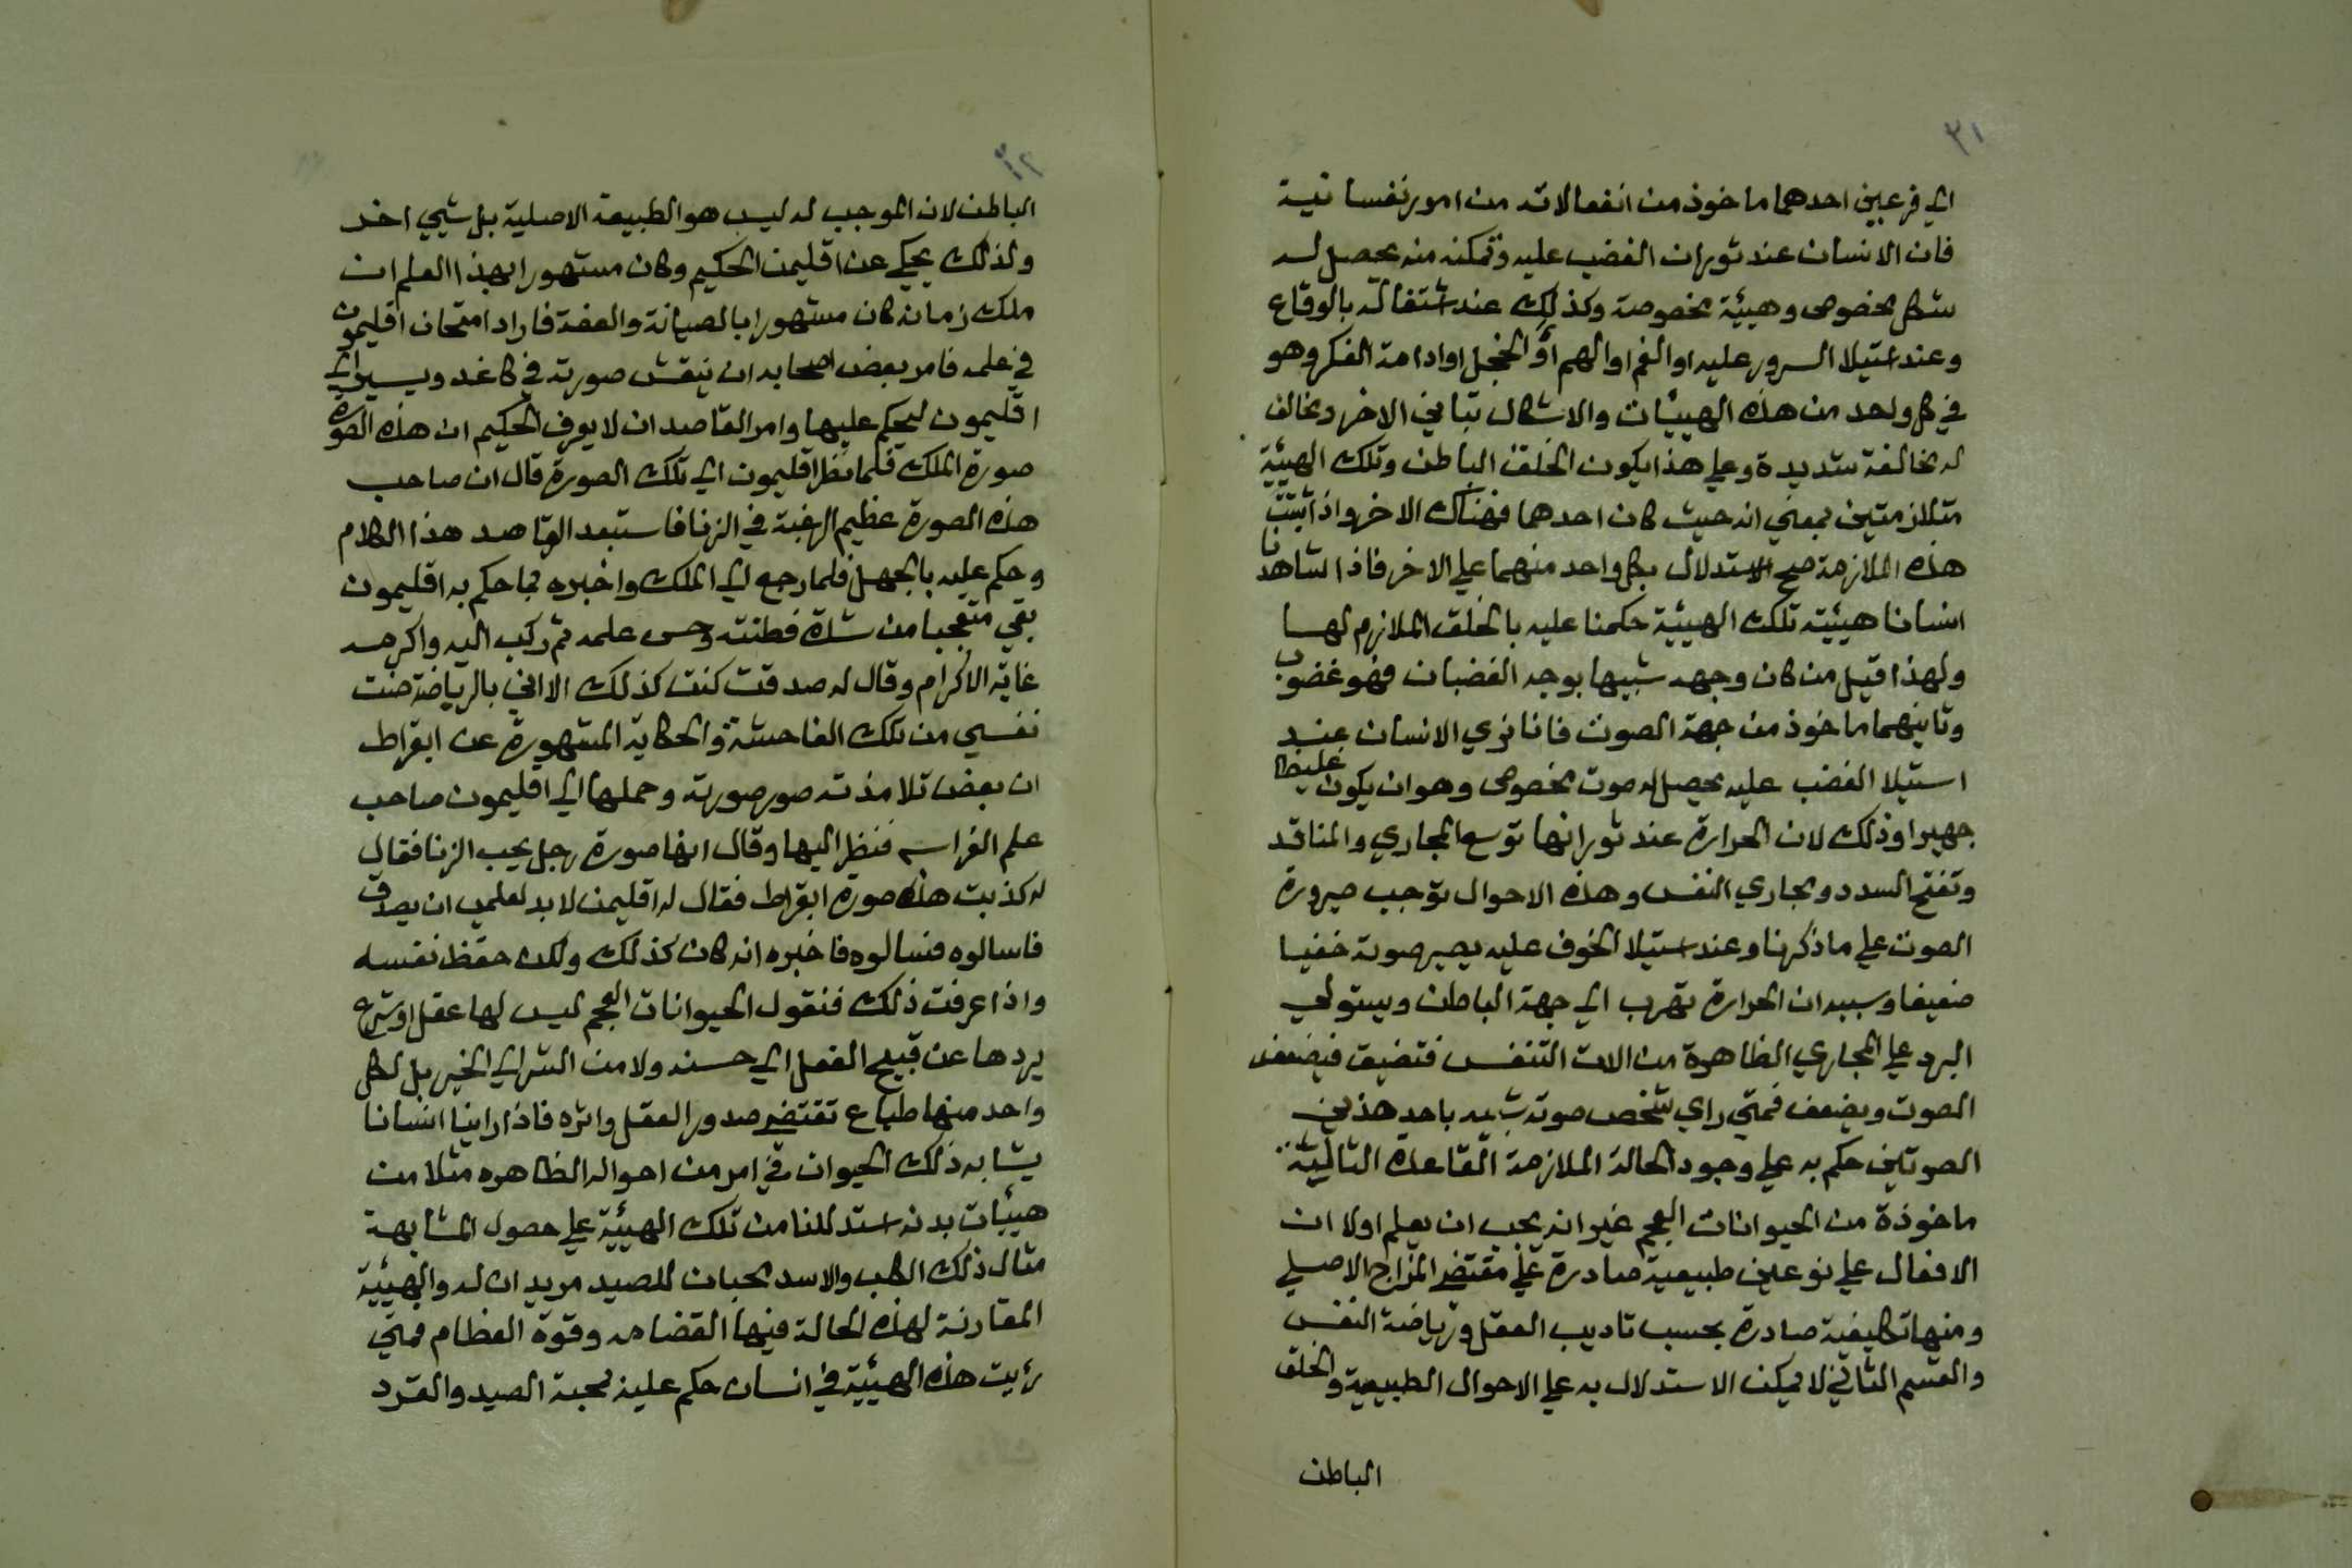 ٣١
الي فرعين احدهما ماخوذ من انفعالاته من امور نفسانية
فان الانسان عند ثوران الغضب عليه وتمكنه منه يحصل له
شكل مخصوص وهيئة مخصوصة وكذلك عند اشتغاله بالوقاع
وعند استيلا السرور عليه او الغم او الهم او الخجل او ادامة الفكر وهو
في كل واحد من هذه الهيئات والاشكال تباين الاخر وتخالف
له مخالفة شديدة وعلي هذا يكون الخلق الباطن وتلك الهيئة
متلازمتين بمعني انه حيث كان احدهما فهناك الاخر واذا ثبتت
هذه الملازمة صح الاستدلال بكل واحد منهما علي الاخر فاذا شاهدنا
انسانا هيئته تلك الهيئة حكمنا عليه بالخلق الملازم لها
ولهذا قيل من كان وجهه شبيها بوجه الغضبان فهو غضوب
وثانيهما ماخوذ من جهة الصوت فانا نري الانسان عند
استيلا الغضب عليه يحصل له صوت مخصوص وهو ان يكون غليظا
جهيرا وذلك لان الحرارة عند ثورانها توسع المجاري والمنافد
وتفتح السدد ومجاري النفس وهذه الاحوال توجب صيرورة
الصوت علي ما ذكرنا وعند استيلا الخوف عليه يصير صوته خفيا
ضعيفا وسببه ان الحرارة تهرب الي جهة الباطن ويستولي
البرد علي المجاري الظاهرة من الات التنفس فتضيق فيضعف
الصوت ويضعف فمتي راي شخص صوته شبيه باحد هذين
الصوتين حكم به علي وجود الحالة الملازمة القاعدة الثالثة
ماخوذة من الحيوانات العجم غير انه يجب ان يعلم اولا ان
الافعال علي نوعين طبيعية صادرة علي مقتضي المزاج الاصلي
ومنها تكليفية صادرة بحسب تاديب العقل ورياضة النفس
والقسم الثاني لا يمكن الاستدلال به علي الاحوال الطبيعية والخلق
الباطن
٣٢
الباطن لان الموجب له ليس هو الطبيعة الاصلية بل شيي اخر
ولذلك يحكي عن اقليمن الحكيم وكان مشهورا بهذا العلم ان
ملك زمانه كان مشهورا بالصيانة والعفة فاراد امتحان اقليمون
في علمه فامر بعض اصحابه ان ينقش صورته في كاغد ويسير الي
اقليمون ليحكم عليها وامر القاصد ان لا يعرف الحكيم ان هذه الصورة
صورة الملك فلما نظر اقليمون الي تلك الصورة قال ان صاحب
هذه الصورة عظيم الرغبة في الزنا فاستبعد القاصد هذا الكلام
وحكم عليه بالجهل فلما رجع الي الملك واخبره بما حكم به اقليمون
بقي متعجبا من شدة فطنته وحسن علمه ثم ركب اليه واكرمه
غاية الاكرام وقال له صدقت كنت كذلك الا اني بالرياضة صنت
نفسي من تلك الفاحشة والحكاية المشهورة عن ابقراط
ان بعض تلامذته صور صورته وحملها الي اقليمون صاحب
علم الفراسه فنظر اليها وقال انها صورة رجل يحب الزنا فقال
له كذبت هذه صورة ابقراط فقال له اقليمن لابد لعلمي ان يصدق
فاسالوه فسالوه فاخبره انه كان كذلك ولكن حفظ نفسه
واذا عرفت ذلك فنقول الحيوانات العجم ليس لها عقل او شرع
يردها عن قبيح الفعل الي حسنه ولا من الشر الي الخير بل لكل
واحد منها طباع تقتضي صدور العقل واثره فاذا راينا انسانا
يشابه ذلك الحيوان في امر من احواله الظاهره مثلا من
هيئات بدنه استدللنا من تلك الهيئة علي حصول المشابهة
مثال ذلك الكلب والاسد محبان للصيد مريدان له والهيئة
المقارنة لهذه الحالة فيها القضامه وقوة العظام فمتي
رئيت هذه الهيئة في انسان حكم عليه لمحبة الصيد والقرد